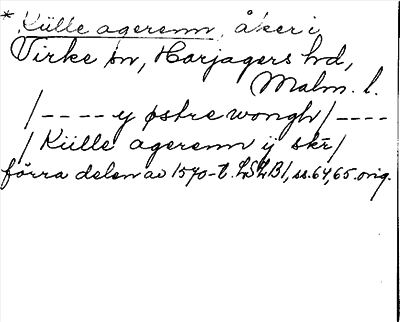 * Külle agerenn, åker i
Virke sn, Harjagers hd,
Malm. l.
/---- y østre wongh/----
/ Külle agerenn ij skr/
förra delen av 1570-t. LSLB1, ss. 64, 65. orig.